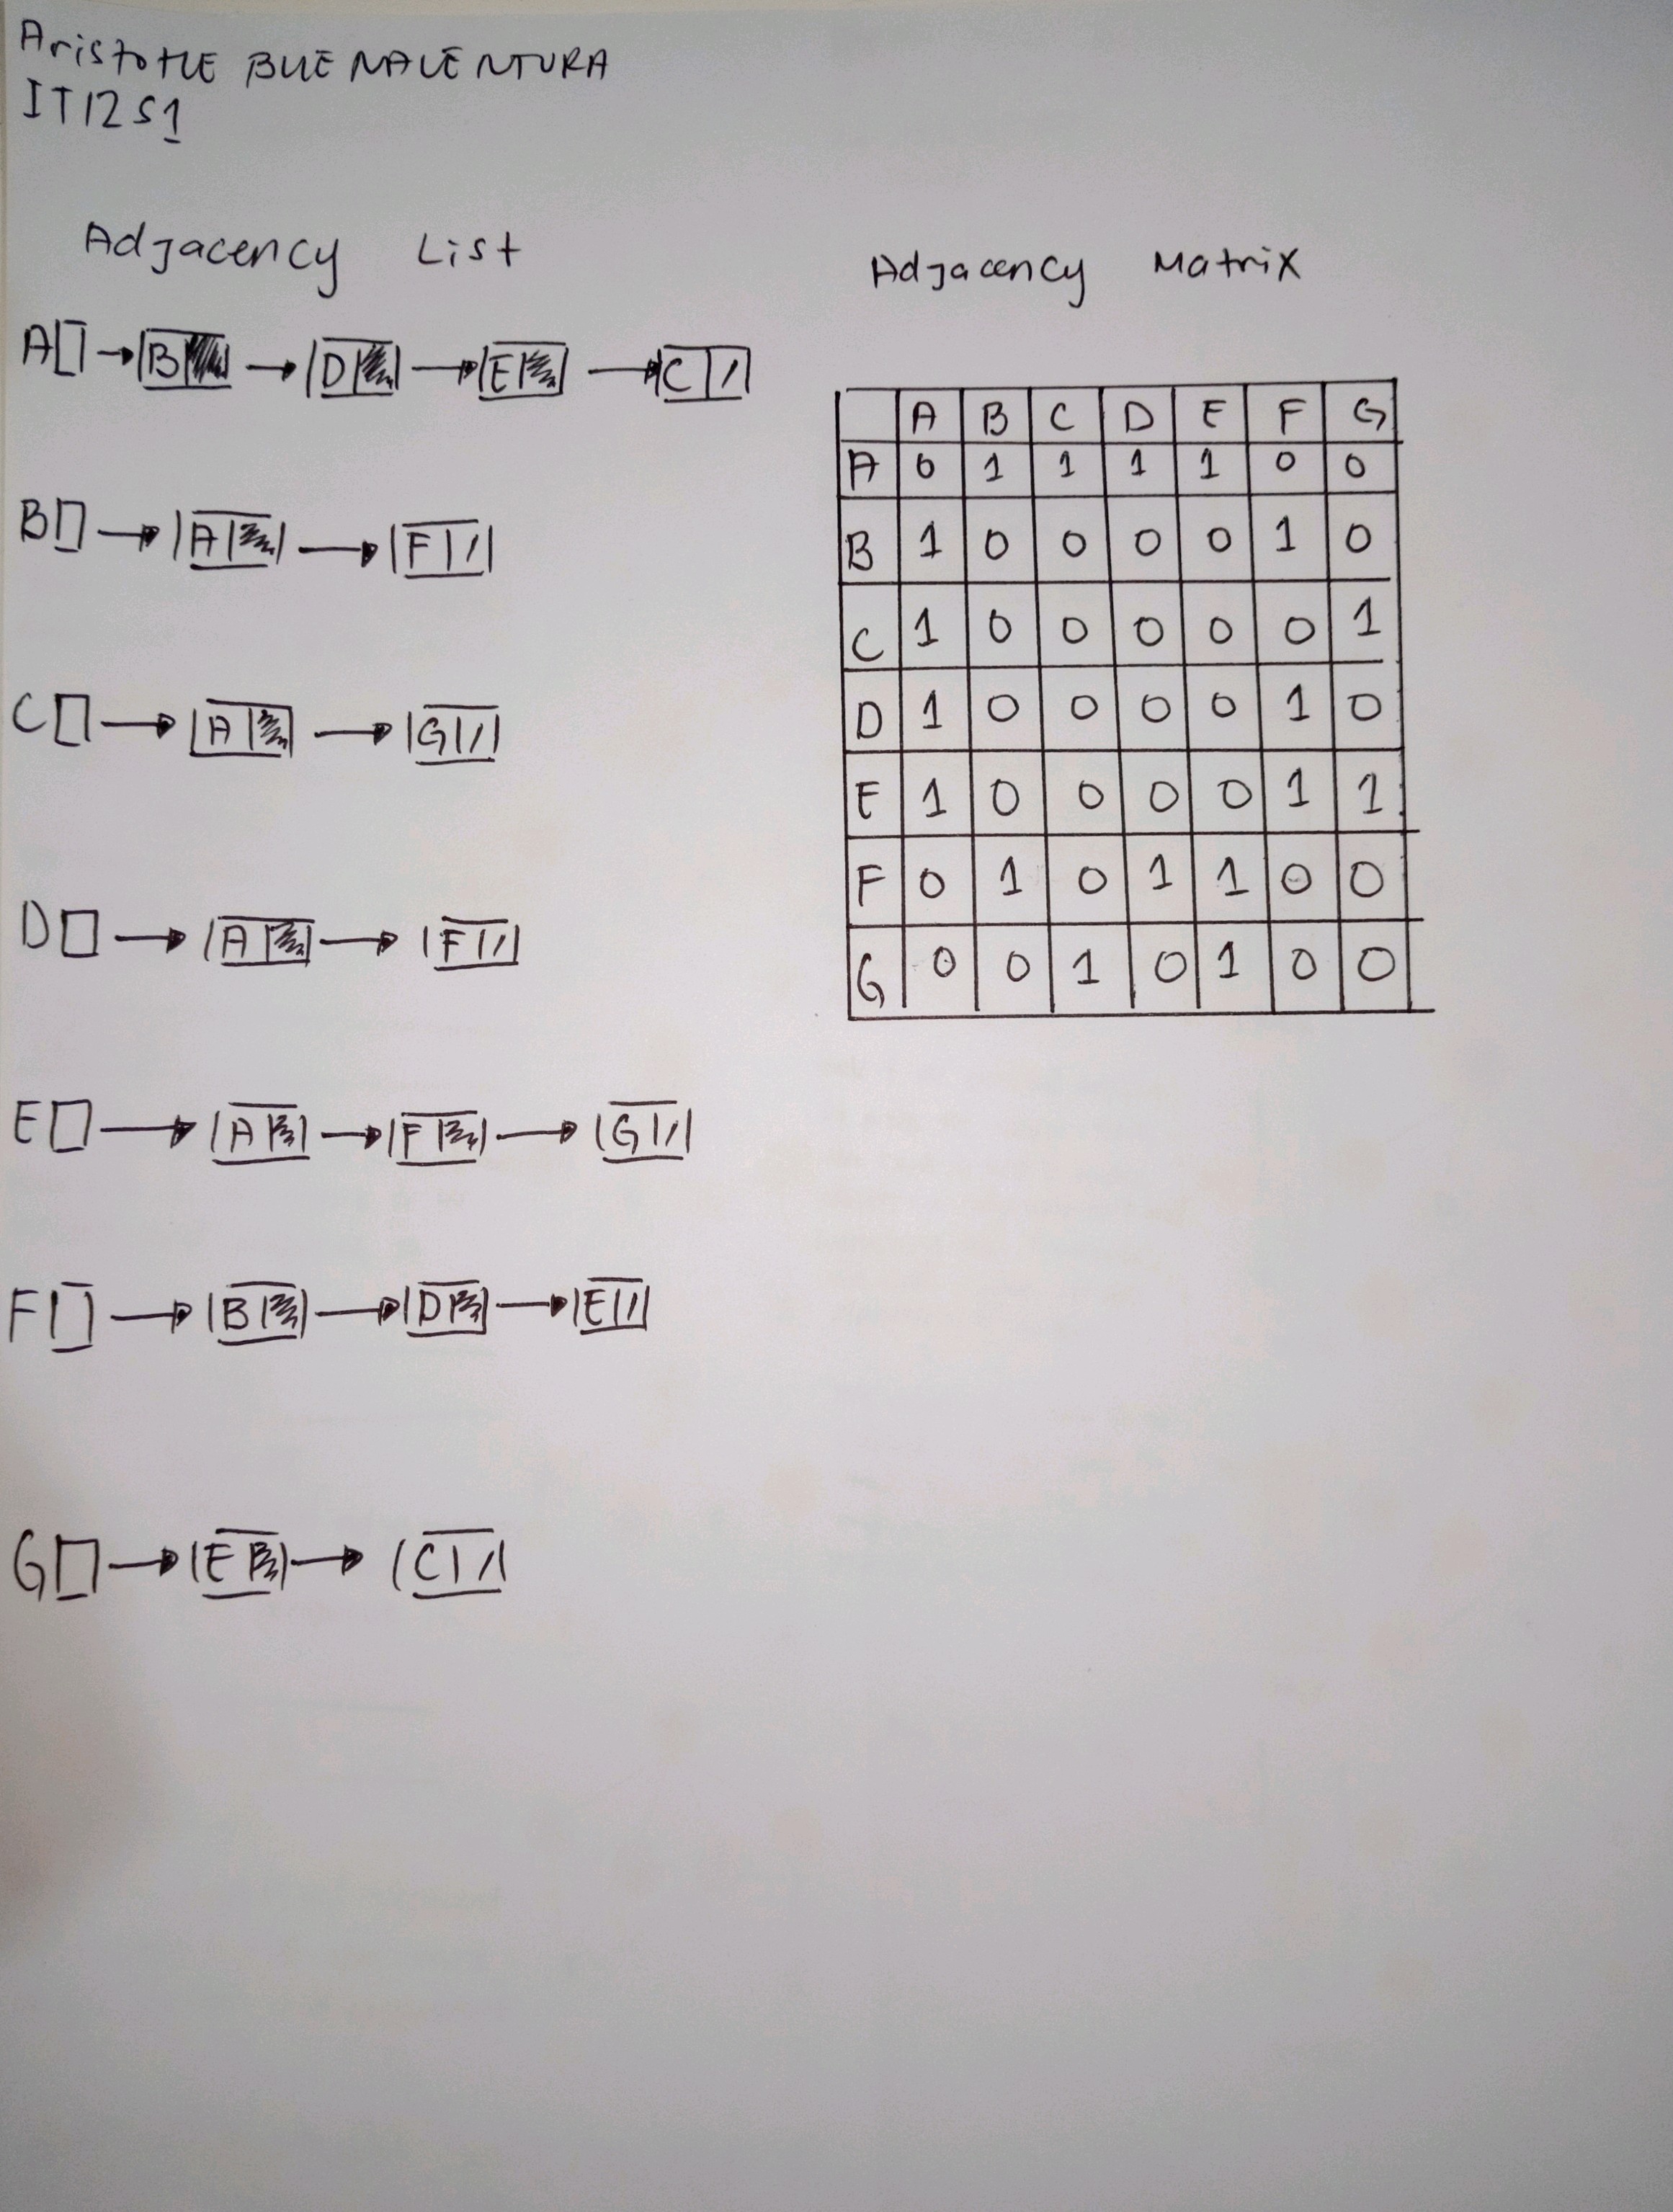 Aristotle BUENAVENTURA
IT12S1
Adjacency List
A → B → D → E → C
B → A → F
C → A → G
D → A → F
E → A → F → G
F → B → D → E
G → E → C
Adjacency Matrix
A B C D E F G
A 0 1 1 1 1 0 0
B 1 0 0 0 0 1 0
C 1 0 0 0 0 0 1
D 1 0 0 0 0 1 0
E 1 0 0 0 0 1 1
F 0 1 0 1 1 0 0
G 0 0 1 0 1 0 0